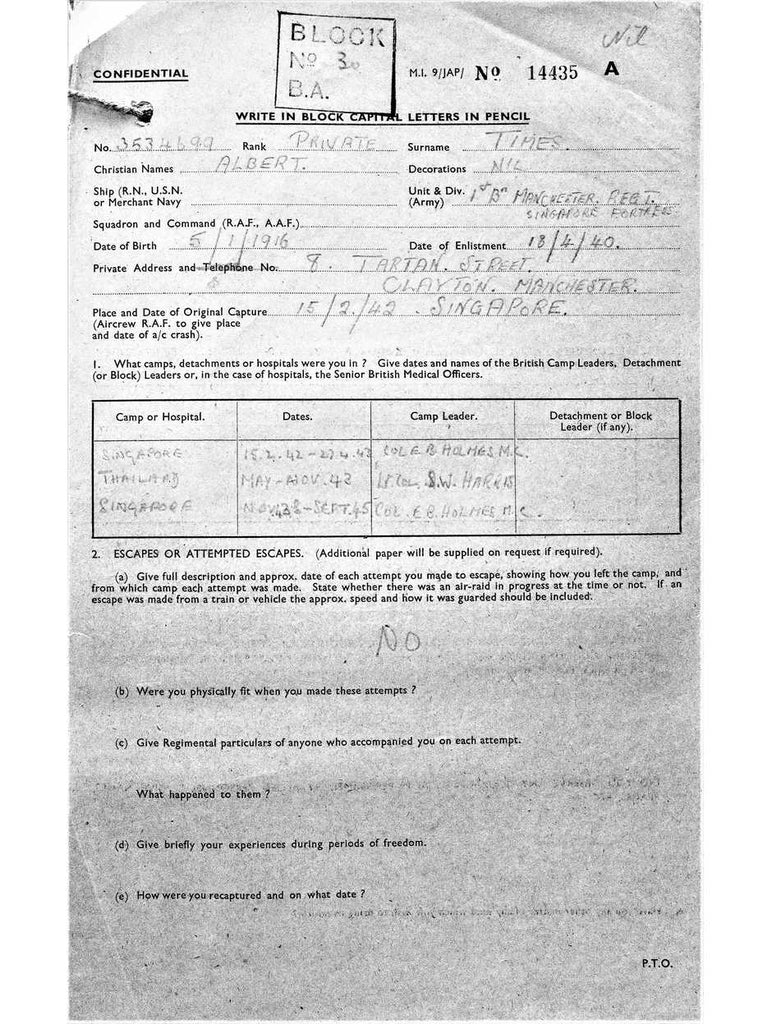 BLOCK
Nº 30
B.A.
Nil
CONFIDENTIAL
M.I. 9/JAP/ Nº 14435 A
WRITE IN BLOCK CAPITAL LETTERS IN PENCIL
No. 3534699 Rank PRIVATE Surname TIMES.
Christian Names ALBERT. Decorations NIL
Ship (R.N., U.S.N. or Merchant Navy
Unit & Div. (Army) 1st Bn MANCHESTER. REGT.
SINGAPORE FORTRESS
Squadron and Command (R.A.F., A.A.F.)
Date of Birth 5/1/1916 Date of Enlistment 18/4/40.
Private Address and Telephone No. 8. TARTAN. STREET.
CLAYTON. MANCHESTER.
Place and Date of Original Capture 15/2/42. SINGAPORE.
(Aircrew R.A.F. to give place
and date of a/c crash).
1. What camps, detachments or hospitals were you in ? Give dates and names of the British Camp Leaders, Detachment
(or Block) Leaders or, in the case of hospitals, the Senior British Medical Officers.
Camp or Hospital. Dates. Camp Leader. Detachment or Block
Leader (if any).
SINGAPORE 15.2.42- COL E.B. HOLMES M.C.
THAILAND MAY-NOV.43 LT COL. S.W. HARRIS
SINGAPORE SEPT.45 COL. E.B. HOLMES M.C.
2. ESCAPES OR ATTEMPTED ESCAPES. (Additional paper will be supplied on request if required).
(a) Give full description and approx. date of each attempt you made to escape, showing how you left the camp, and
from which camp each attempt was made. State whether there was an air-raid in progress at the time or not. If an
escape was made from a train or vehicle the approx. speed and how it was guarded should be included.
NO
(b) Were you physically fit when you made these attempts ?
(c) Give Regimental particulars of anyone who accompanied you on each attempt.
What happened to them ?
(d) Give briefly your experiences during periods of freedom.
(e) How were you recaptured and on what date ?
P.T.O.